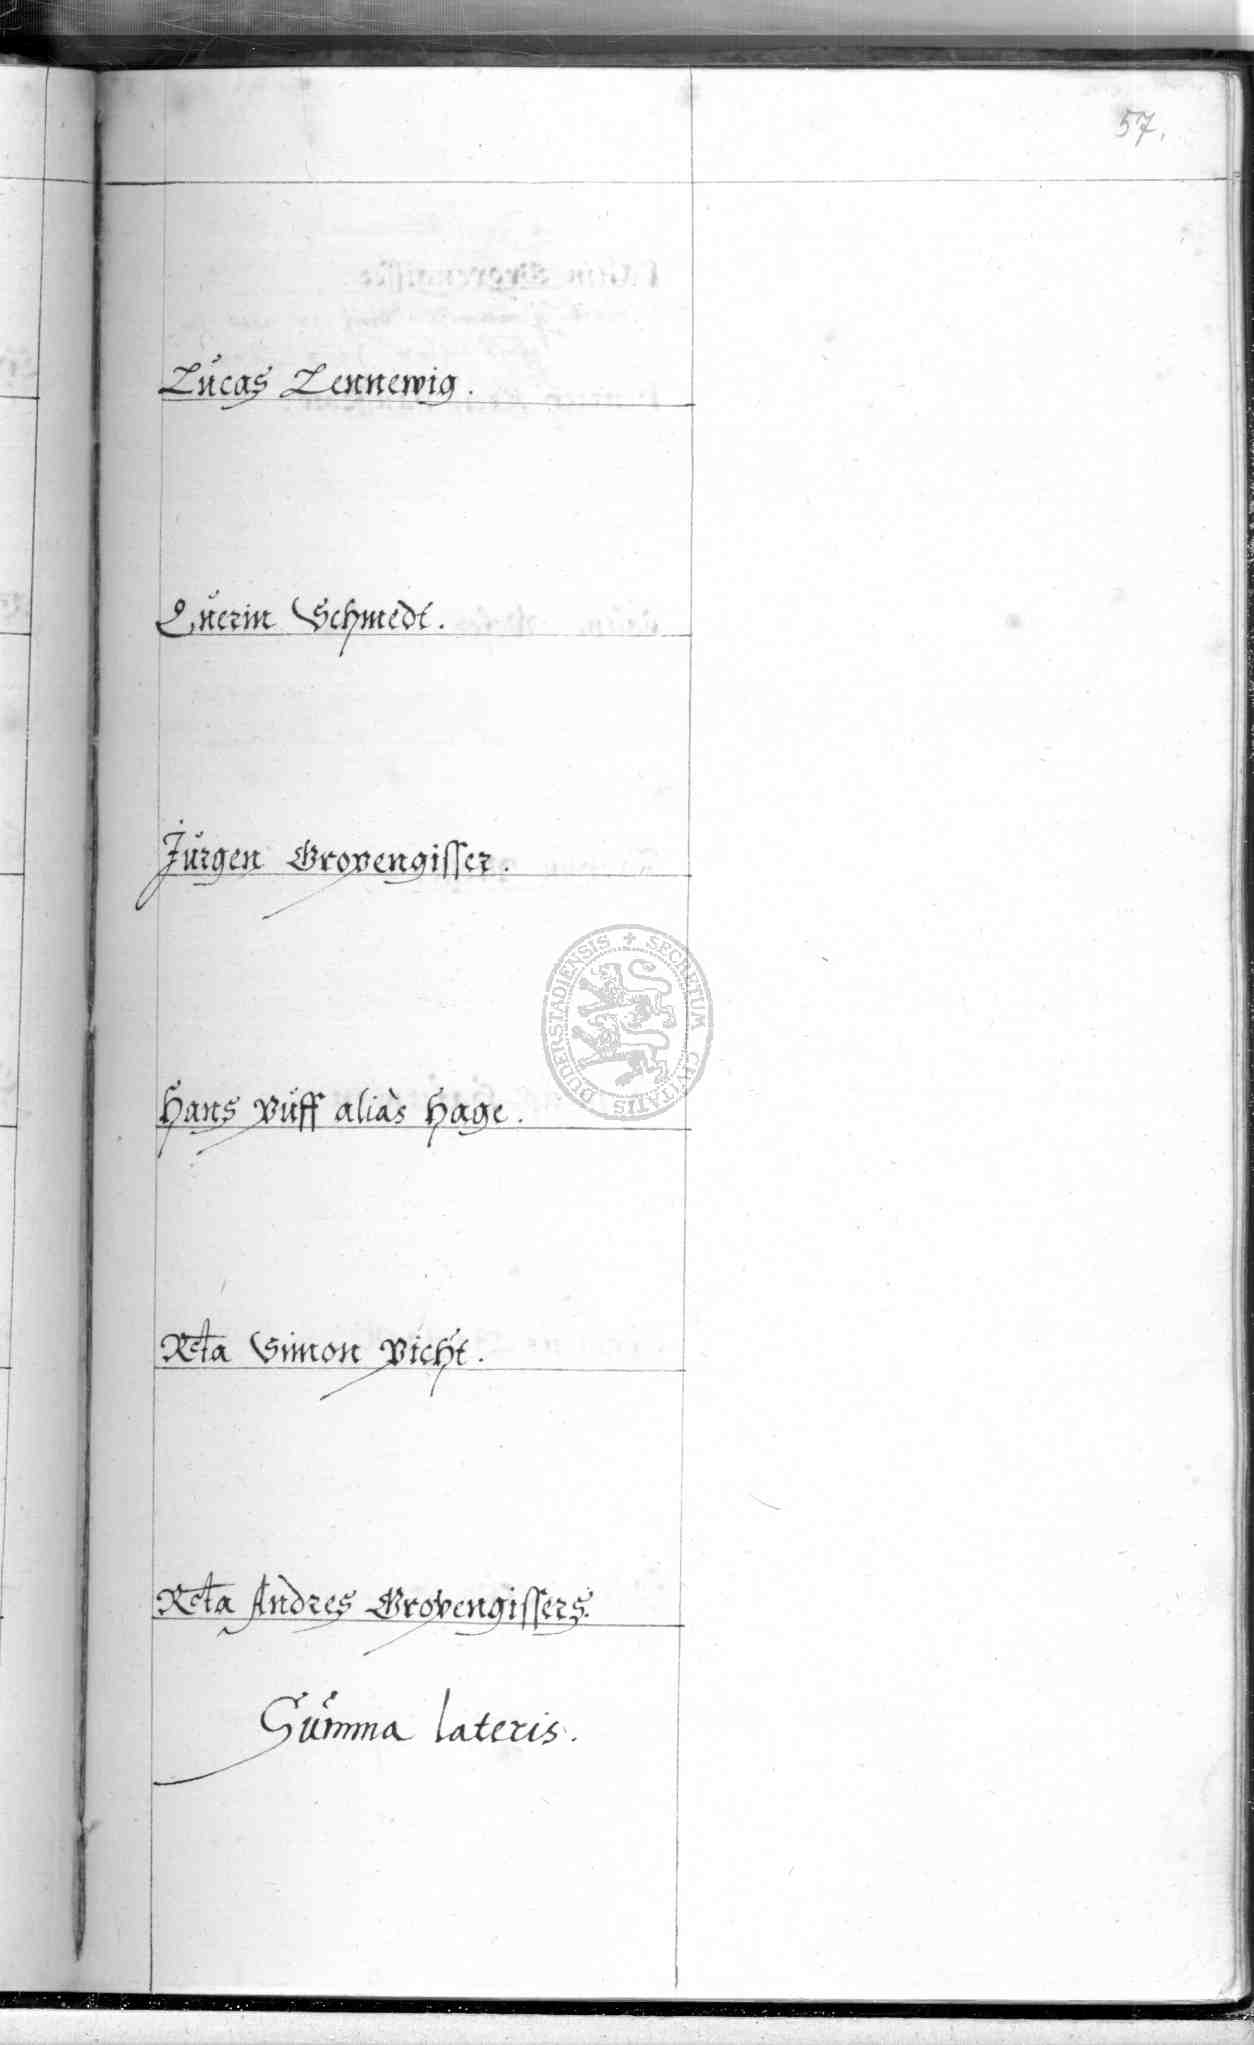 57.
Lucas Lennewig.
Querin Schmedt.
Jürgen Gropengisser.
Hans Puff aliàs Hage.
Rcta Simon Picht.
Rcta Andres Gropengissers.
Summa lateris.
SECRETUM CIVITATIS DUDERSTADIENSIS